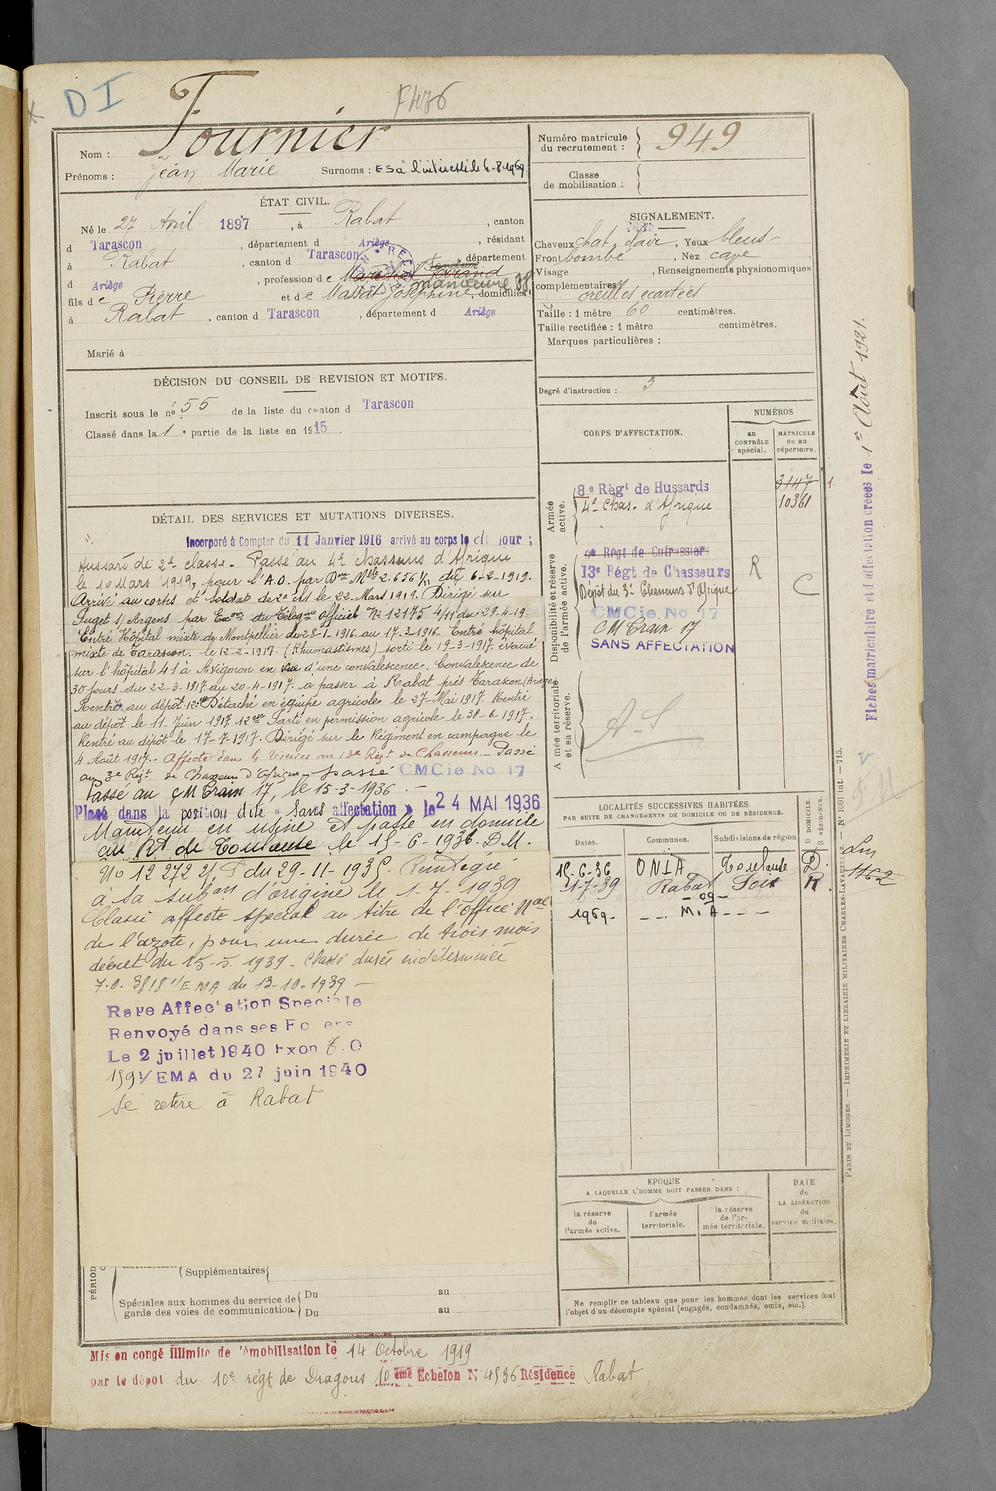 D I
F476
Nom : Fournier
Prénoms : Jean Marie Surnoms :
Numéro matricule du recrutement : 949
Classe de mobilisation :
ÉTAT CIVIL.
Né le 27 Avril 1897, à Rabat, canton
d Tarascon, département d Ariège, résidant
à Rabat, canton d Tarascon, département
d Ariège, profession de manœuvre
fils de Pierre et de Massat Joséphine, domiciliés
à Rabat, canton d Tarascon, département d Ariège
Marié à
SIGNALEMENT.
Cheveux chat. clair, Yeux bleus
Front bombé, Nez cave
Visage , Renseignements physionomiques
complémentaires : oreilles écartées
Taille : 1 mètre 60 centimètres.
Taille rectifiée : 1 mètre centimètres.
Marques particulières :
Degré d'instruction : 3
DÉCISION DU CONSEIL DE REVISION ET MOTIFS.
Inscrit sous le n° 55 de la liste du canton d Tarascon
Classé dans la 1e partie de la liste en 1915.
CORPS D'AFFECTATION.
NUMÉROS
au CONTRÔLE spécial.
MATRICULE ou au répertoire.
Armée active.
8e Régt de Hussards 3147
4e Chas. d'Afrique 10361
Disponibilité et réserve de l'armée active.
9e Régt de Cuirassiers
13e Régt de Chasseurs R C
Dépôt du 3e Chasseurs d'Afrique
CMCie No 17
CM Train 17
SANS AFFECTATION
Armée territoriale et sa réserve.
A-S
DÉTAIL DES SERVICES ET MUTATIONS DIVERSES.
Incorporé à Compter du 11 Janvier 1916 arrivé au corps le dit jour ;
Hussard de 2e classe. Passé au 4e chasseurs d'Afrique
le 10 Mars 1919, pour l'A.O. par Don Mlle 2.656 1/1 du 6-2-1919.
Arrivé au corps et soldat de 2e cl. le 22 Mars 1919. Dirigé sur
Puget s/ Argens par du Télégme officiel No 12175 4/11 du 29.4.19.
Entré Hôpital mixte de Montpellier du 28-1-1916 au 17-3-1916. Entré hôpital
mixte de Tarascon le 12-2-1917. (Rhumatismes) sorti le 19-3-1917. évacué
sur l'hôpital 41 à Avignon en vue d'une convalescence. Convalescence de
30 jours du 22-3-1917 au 20-4-1917. à passer à Rabat près Tarascon (Ariège)
Rentré au dépôt. Détaché en équipe agricole le 27-Mai 1917. Rentré
au dépôt le 11. Juin 1917. Parti en permission agricole le 30-6-1917.
Rentré au dépôt le 17-7-1917. Dirigé sur le Régiment en campagne le
4 Août 1917. Affecté dans les Réserves au 13e Régt de Chasseurs. Passé
au 3e Régt de Chasseurs d'Afrique. Passé CMCie No 17
Passé au CM Train 17, le 15-3-1936.
Placé dans la position dite « Sans affectation » le 24 MAI 1936
Manœuvre en usine et passe en domicile
au Rt de Toulouse le 15-6-1936. D.M.
No 12 272 2/1 S du 29-11-1935. Réintégré
à sa subon d'origine le 1-7-1939
Classé affecté spécial au titre de l'Office Nal
de l'azote, pour une durée de trois mois
décret du 15-5-1939 - Classé durée indéterminée
7.0. 3818 1/EMA du 13-10-1939 -
Rayé Affectation Spéciale
Renvoyé dans ses Foyers
Le 2 juillet 1940 Exon T.O
159 1/EMA du 27 juin 1940
Se retire à Rabat
LOCALITÉS SUCCESSIVES HABITÉES
PAR SUITE DE CHANGEMENTS DE DOMICILE OU DE RÉSIDENCE.
Dates. Communes. Subdivisions de région D DOMICILE. R RÉSIDENCE.
15-6-36 ONIA Toulouse D
1-7-39 Rabat Foix R
- 09 -
1969 - M.A -
EPOQUE
A LAQUELLE L'HOMME DOIT PASSER DANS :
la réserve de l'armée active.
l'armée territoriale.
la réserve de l'armée territoriale.
DATE de LA LIBÉRATION du service militaire.
Ne remplir ce tableau que pour les hommes dont les services font
l'objet d'un décompte spécial (engagés, condamnés, omis, etc.).
(Supplémentaires
Spéciales aux hommes du service de garde des voies de communication.
Du au
Du au
Mis en congé illimité de démobilisation le 14 Octobre 1919
par le dépôt du 10e régt de Dragons 10ème Echelon No 4536 Résidence Rabat
Fiches matriculaire et d'affectation créées le 1er Août 1921.
PARIS ET LIMOGES. — IMPRIMERIE ET LIBRAIRIE MILITAIRES CHARLES-LAVAUZELLE. — No 1001 int. — 715.
1162